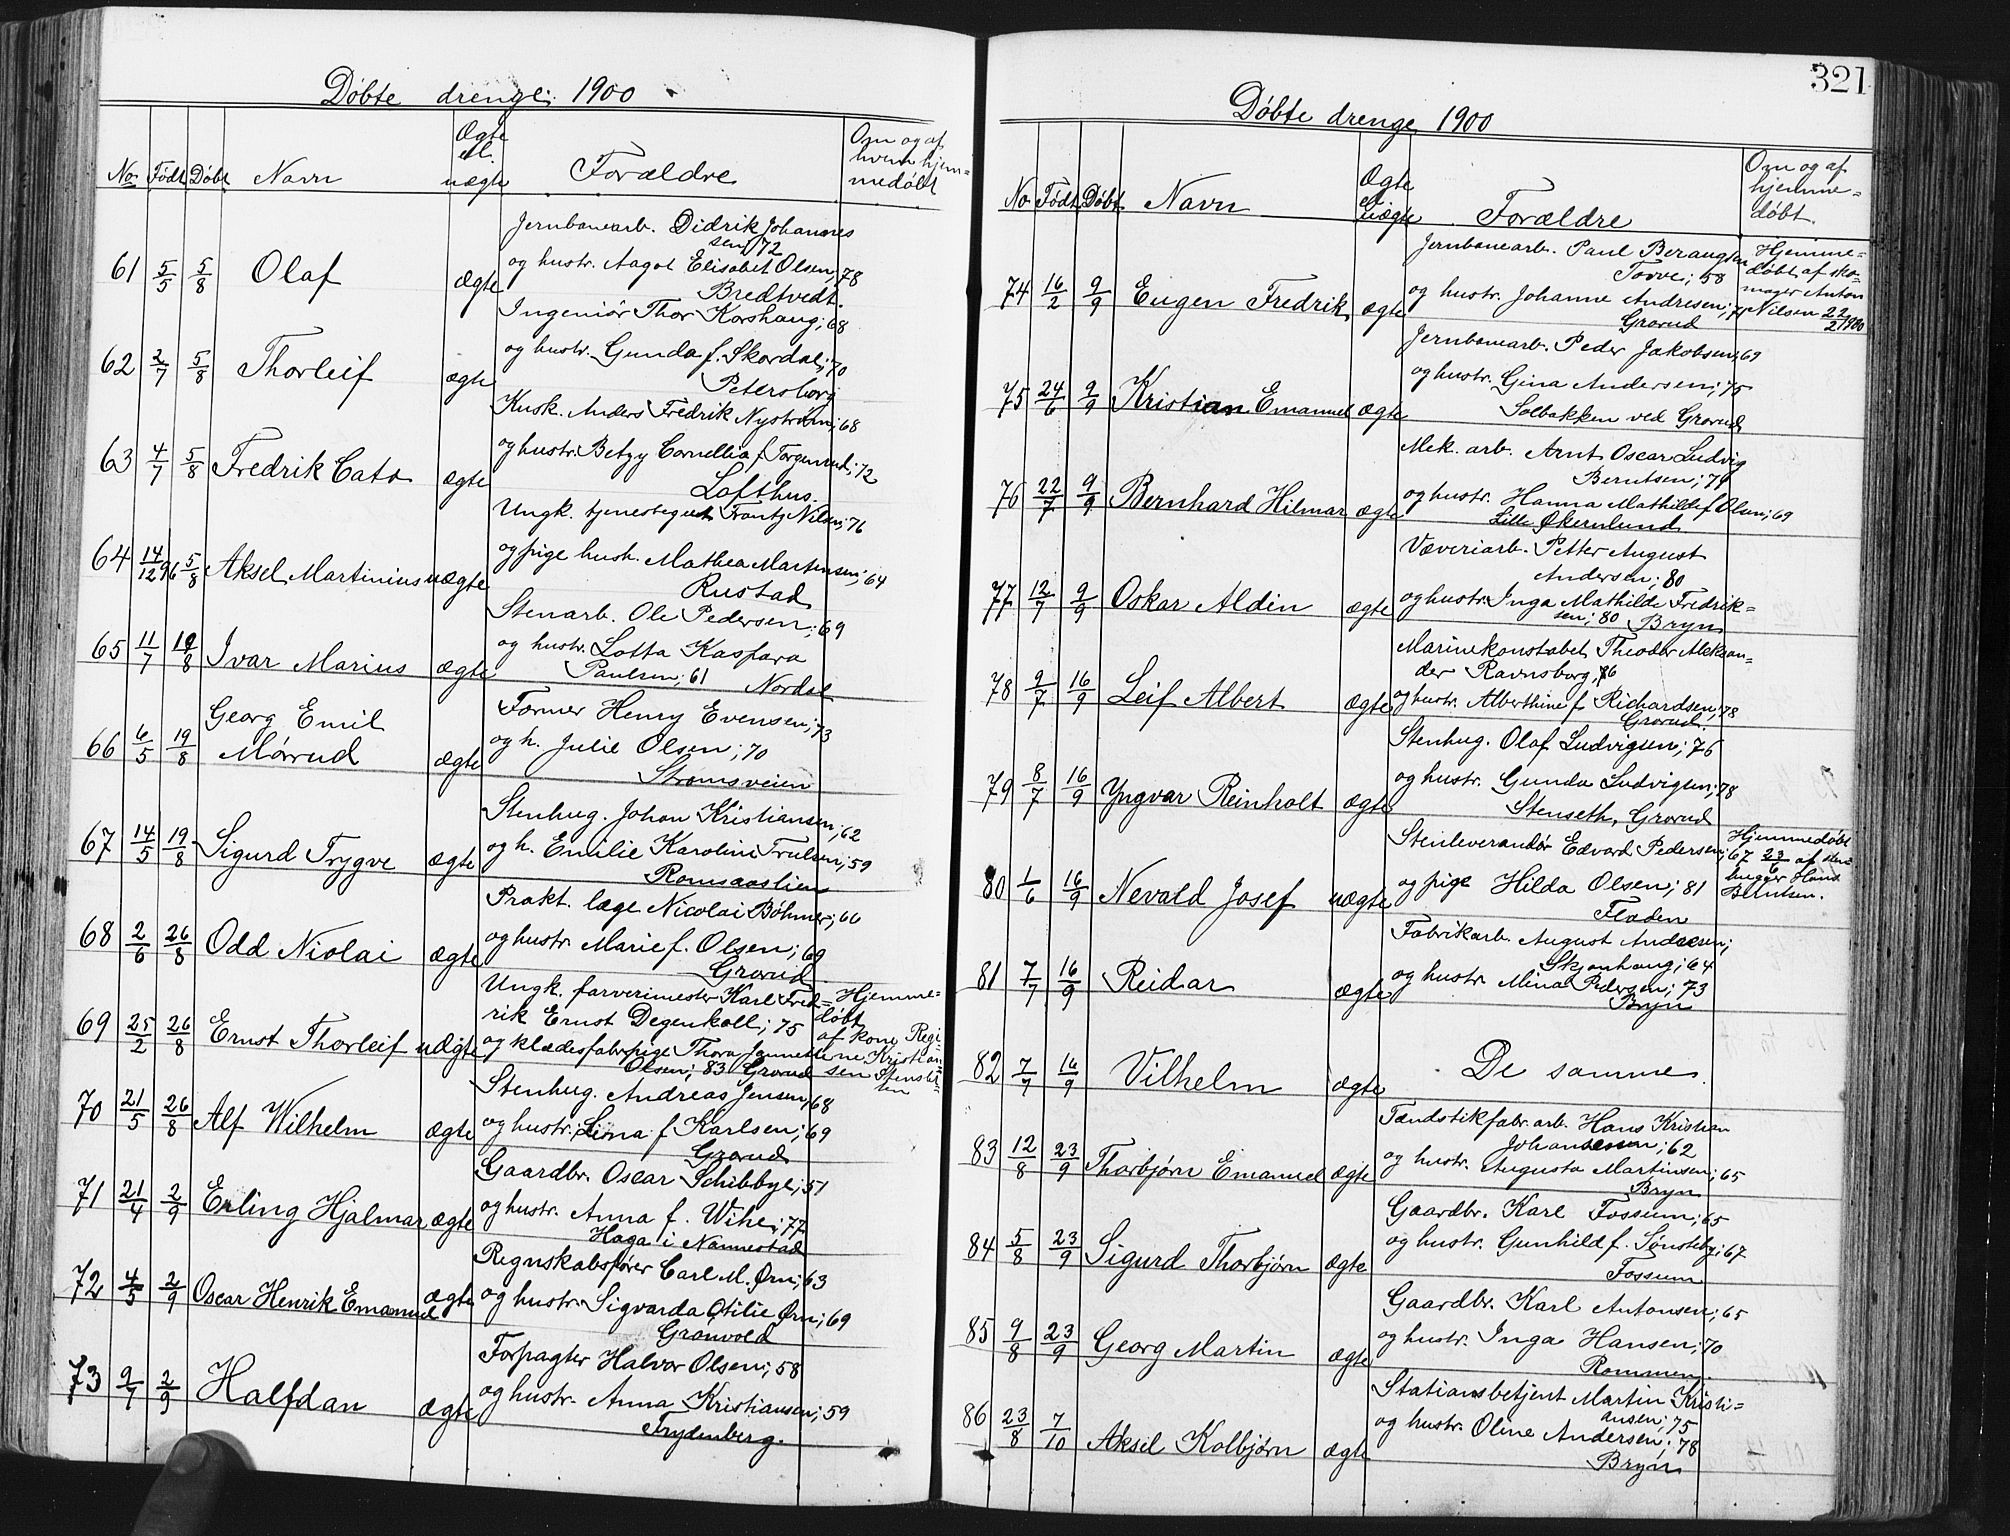 Døbte drenge, 1900
No Født Døbt Navn Ægte el. uægte Forældre Om og af hvem hjemmedøbt
Jernbanearb. Didrik Johannes
sen, 72
61 5/5 5/8 Olaf ægte og hustr. Aagot Elisabet Olsen, 78
Bredtvedt.
Ingeniør Thor Korshaug; 68
62 2/7 5/8 Thorleif ægte og hustr. Gunda f. Skardal; 70
Petersborg
Kusk. Anders Fredrik Nystrøm; 68
63 4/7 5/8 Fredrik Cato ægte og hustr. Betzy Cornellia f. Torgersrud; 72
Lofthus.
Ungk. tjenestegut Frantz Nilsen; 76
64 14/12 96 5/8 Aksel Martinius uægte og pige hush. Mathea Martensen; 64
Rustad
Stenarb. Ole Pedersen; 69
65 11/7 19/8 Ivar Marius ægte og hustr. Lotta Kaspara
Paulsen; 61 Nordal
66 6/5 19/8 Georg Emil
Mørrud ægte Former Henry Evensen; 73
og h. Julie Olsen; 70
Strømsveien
Stenhug. Johan Kristiansen; 62
67 14/5 19/8 Sigurd Trygve ægte og h. Emilie Karoline Trulsen; 59
Romsaaslien
Prakt. læge Nicolai Bøhmer; 66
68 2/6 26/8 Odd Niolai ægte og hustr. Marie f. Olsen; 69
Grorud
Ungk. farverimester Karl Fred=
rik Ernst Degenkoll; 75
69 25/2 26/8 Ernst Thorleif uægte og klædesfabrpige Thora Jannette
Olsen; 83 Grorud
Hjemme=
døbt
af kone Regi=
ne Kristian=
sen
Stenhug. Andreas Jensen, 68
70 21/5 26/8 Alf Wilhelm ægte og hustr. Lina f. Karlsen; 69
Grorud
Gaardbr. Oscar Schibbye; 51
71 21/4 2/9 Erling Hjalmar ægte og hustr. Anna f. Wihe; 77
Haga i Nannestad
Regnskabsfører Carl M. Ørn; 63
72 4/5 2/9 Oscar Henrik Emanuel ægte og hustr. Sigvarda Otilie Ørn; 69
Grønvold
Forpagter Halvor Olsen; 58
73 9/7 2/9 Halfdan ægte og hustr. Anna Kristiansen; 59
Frydenberg.
321
Døbte drenge 1900
No Født Døbt Navn Ægte el. uægte Forældre Om og af hjemme=døbt.
Jernbanearb. Paul Berangsen
Torve; 58
74 16/2 9/9 Eugen Fredrik ægte og hustr. Johanne Andresen; 75
Grorud
Hjemme=
døbt af sko=
mager Anton
Nilsen 22/2 1900
Jernbanearb. Peder Jakobsen; 69
75 24/6 9/9 Kristian Emanuel ægte og hustr. Gina Andersen; 75
Solbakken ved Grorud
Mek. arb. Arnt Oscar Ludvig
Berntsen; 74
76 22/7 9/9 Bernhard Hilmar ægte og hustr. Hanna Mathilde f Olsen; 69
Lille Økernlund
Væveriarb. Petter August
Andersen; 80
77 12/7 9/9 Oskar Aldin ægte og hustr. Inga Mathilde Fredrik=
sen; 80 Bryn
Marinekonstabel Theodor Aleksan=
der Ravnsborg, 76
78 9/7 16/9 Leif Albert ægte og hustr. Alberthine f Richardsen; 78
Grorud.
Stenhug. Olaf Ludvigsen; 76
79 8/7 16/9 Yngvar Reinholt ægte og hustr. Gunda Ludvigsen; 78
Stenseth, Grorud
Stenleverandør Edvard Pedersen; 67
80 1/6 16/9 Nevald Josef uægte og pige Hilda Olsen; 81
Fladen
Hjemmedøbt
23/6 af sten=
hugger Hans
Berntsen.
Fabrikarb. August Andresen;
Skjønhaug; 64
81 7/7 16/9 Reidar ægte og hustr Mina Pedersen; 73
Bryn
82 7/7 16/9 Vilhelm ægte De samme.
Tændstikfabr. arb. Hans Kristian
Johannesen; 62
83 12/8 23/9 Thorbjørn Emanuel ægte og hustr. Augusta Martinsen; 65
Bryn
Gaardbr. Karl Fossum; 65
84 5/8 23/9 Sigurd Thorbjørn ægte og hustr. Gunhild f. Sønsteby; 67
Fossum
Gaardbr. Karl Antonsen; 65
85 9/8 23/9 Georg Martin ægte og hustr. Inga Hansen; 70
Rommen.
Stationsbetjent Martin Kristi=
ansen; 75
86 23/8 7/10 Aksel Kolbjørn ægte og hustr. Oline Andersen; 78
Bryn